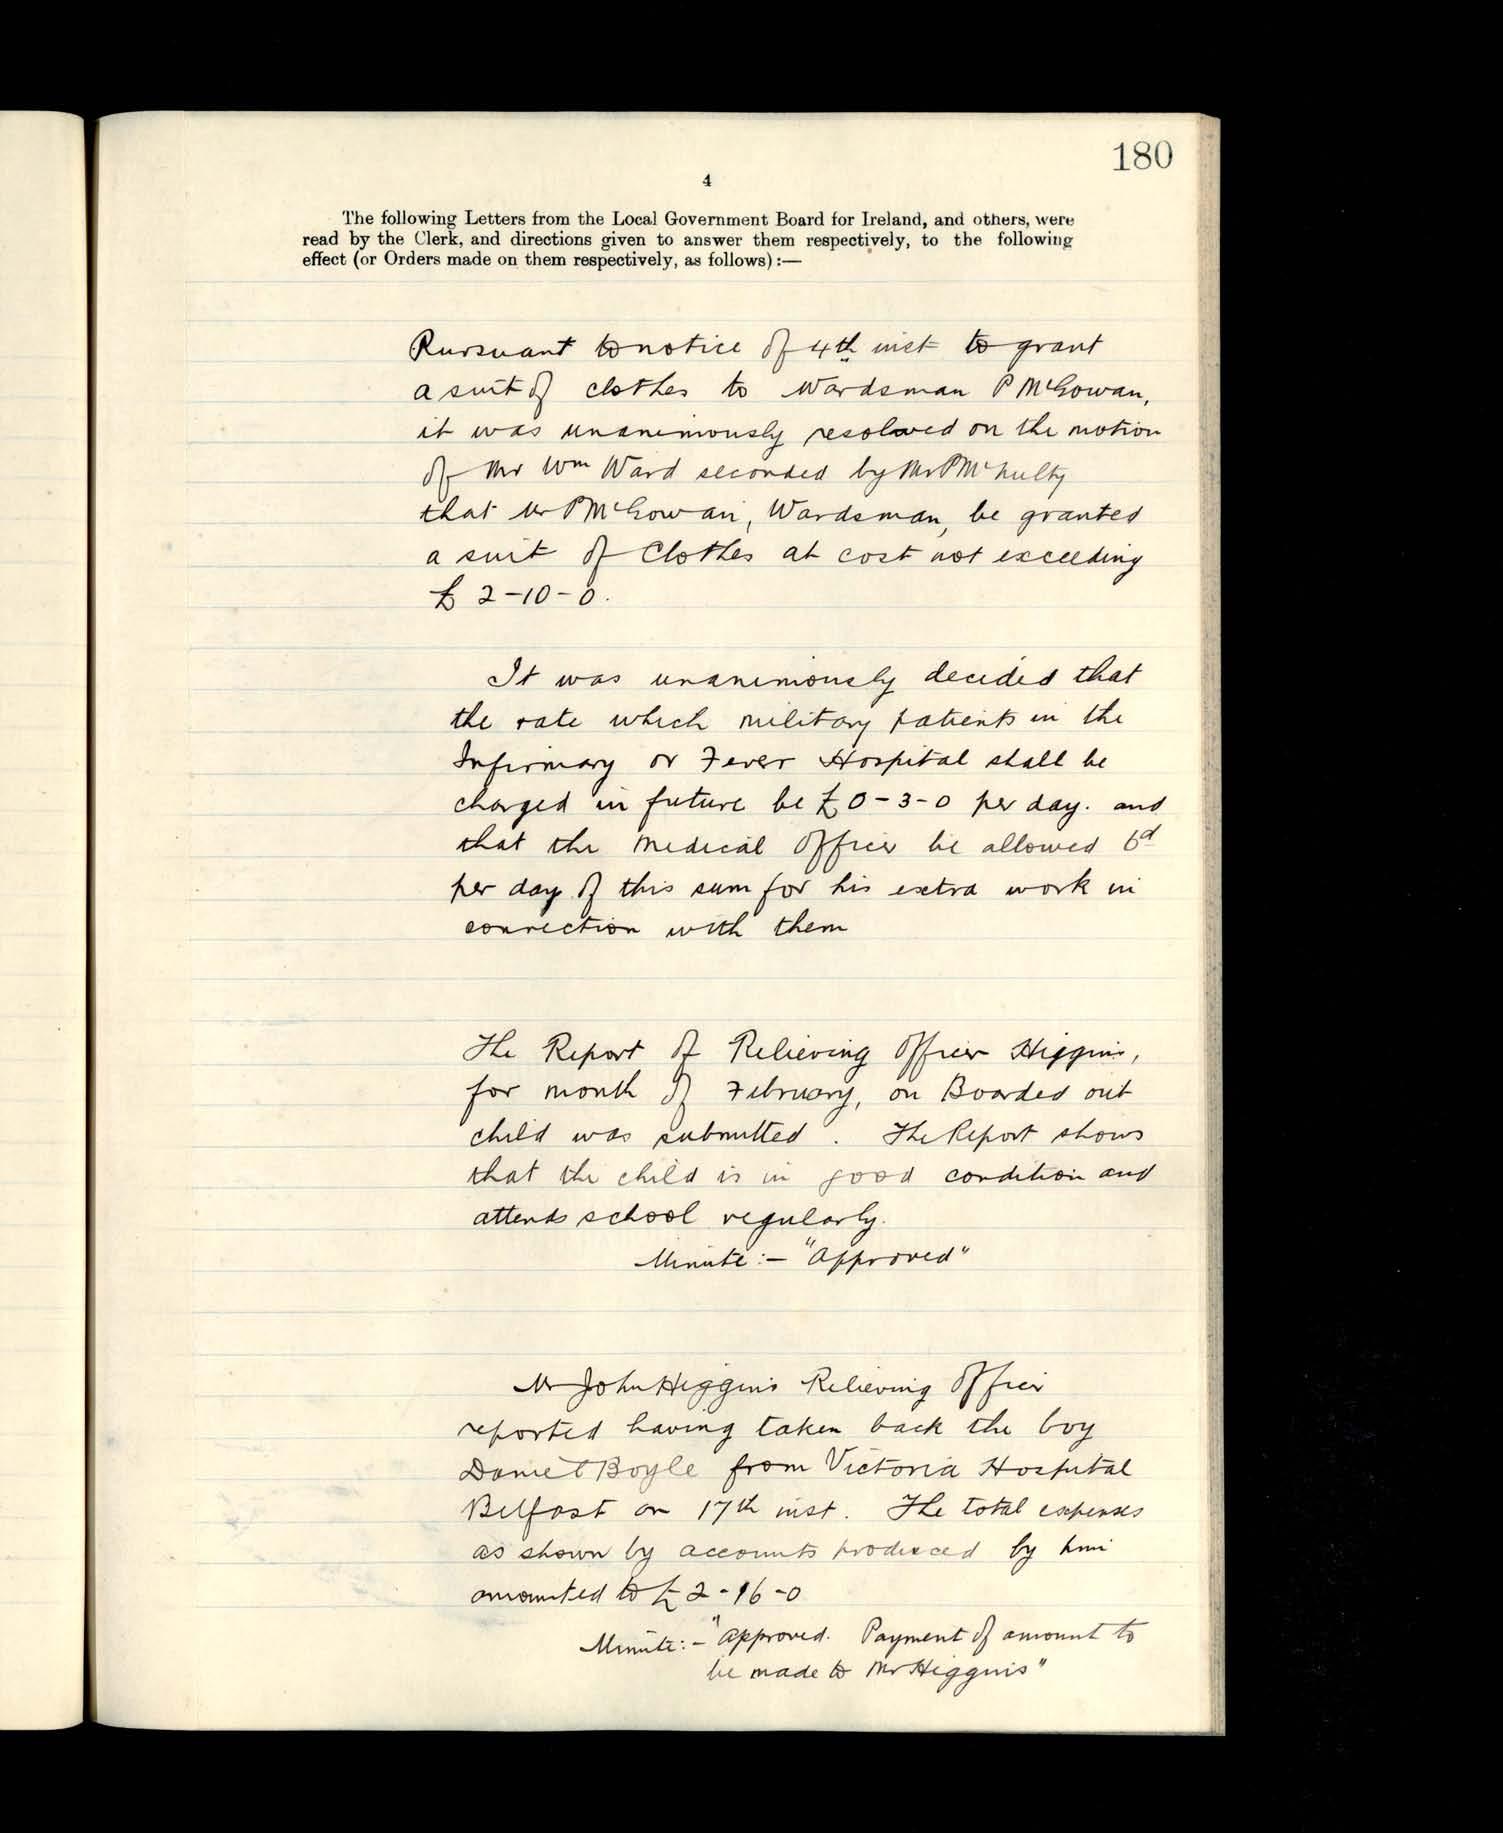 180
4
The following Letters from the Local Government Board for Ireland, and others, were
read by the Clerk, and directions given to answer them respectively, to the following
effect (or Orders made on them respectively, as follows) :—
Pursuant to notice of 4th inst to grant
a suit of clothes to Wardsman P McGowan,
it was unanimously resolved on the motion
of Mr Wm Ward seconded by Mr P McNulty
that Mr P McGowan, Wardsman, be granted
a suit of Clothes at cost not exceeding
£ 2-10-0.
It was unanimously decided that
the rate which military patients in the
Infirmary or Fever Hospital shall be
charged in future be £ 0-3-0 per day. and
that the Medical Officer be allowed 6d
per day of this sum for his extra work in
connection with them
The Report of Relieving Officer Higgins,
for month of February, on Boarded out
child was submitted. The Report shows
that the child is in good condition and
attends school regularly.
Minute:- "Approved"
Mr John Higgins Relieving Officer
reported having taken back the boy
Daniel Boyle from Victoria Hospital
Belfast on 17th inst. The total expenses
as shown by accounts produced by him
amounted to £2-16-0
Minute:- "Approved. Payment of amount to
be made to Mr Higgins"